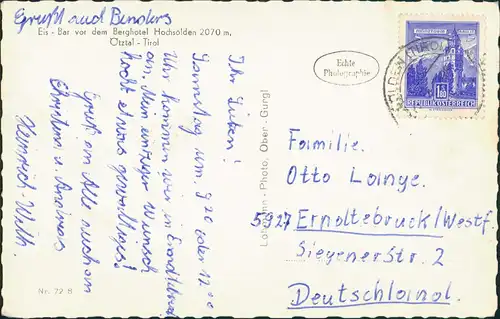 Grüßt auch Binders
Eis - Bar vor dem Berghotel Hochsölden 2070 m,
Ötztal - Tirol
Echte
Photographie
1.80
REPUBLIK ÖSTERREICH
Ihr Lieben!
Samstag um 9 20 oder 12 00
Uhr kommen wir in Erndtebrück
an. Mein einziger Wunsch
kocht etwas gewaltiges!
Gruß an Alle auch an
u.
Heinrich-Wilh.
Lohmann - Photo, Ober - Gurgl
Familie.
Otto Lange.
5927 Erndtebrück/Westf.
Siegenerstr. 2
Deutschland.
Nr. 72 B